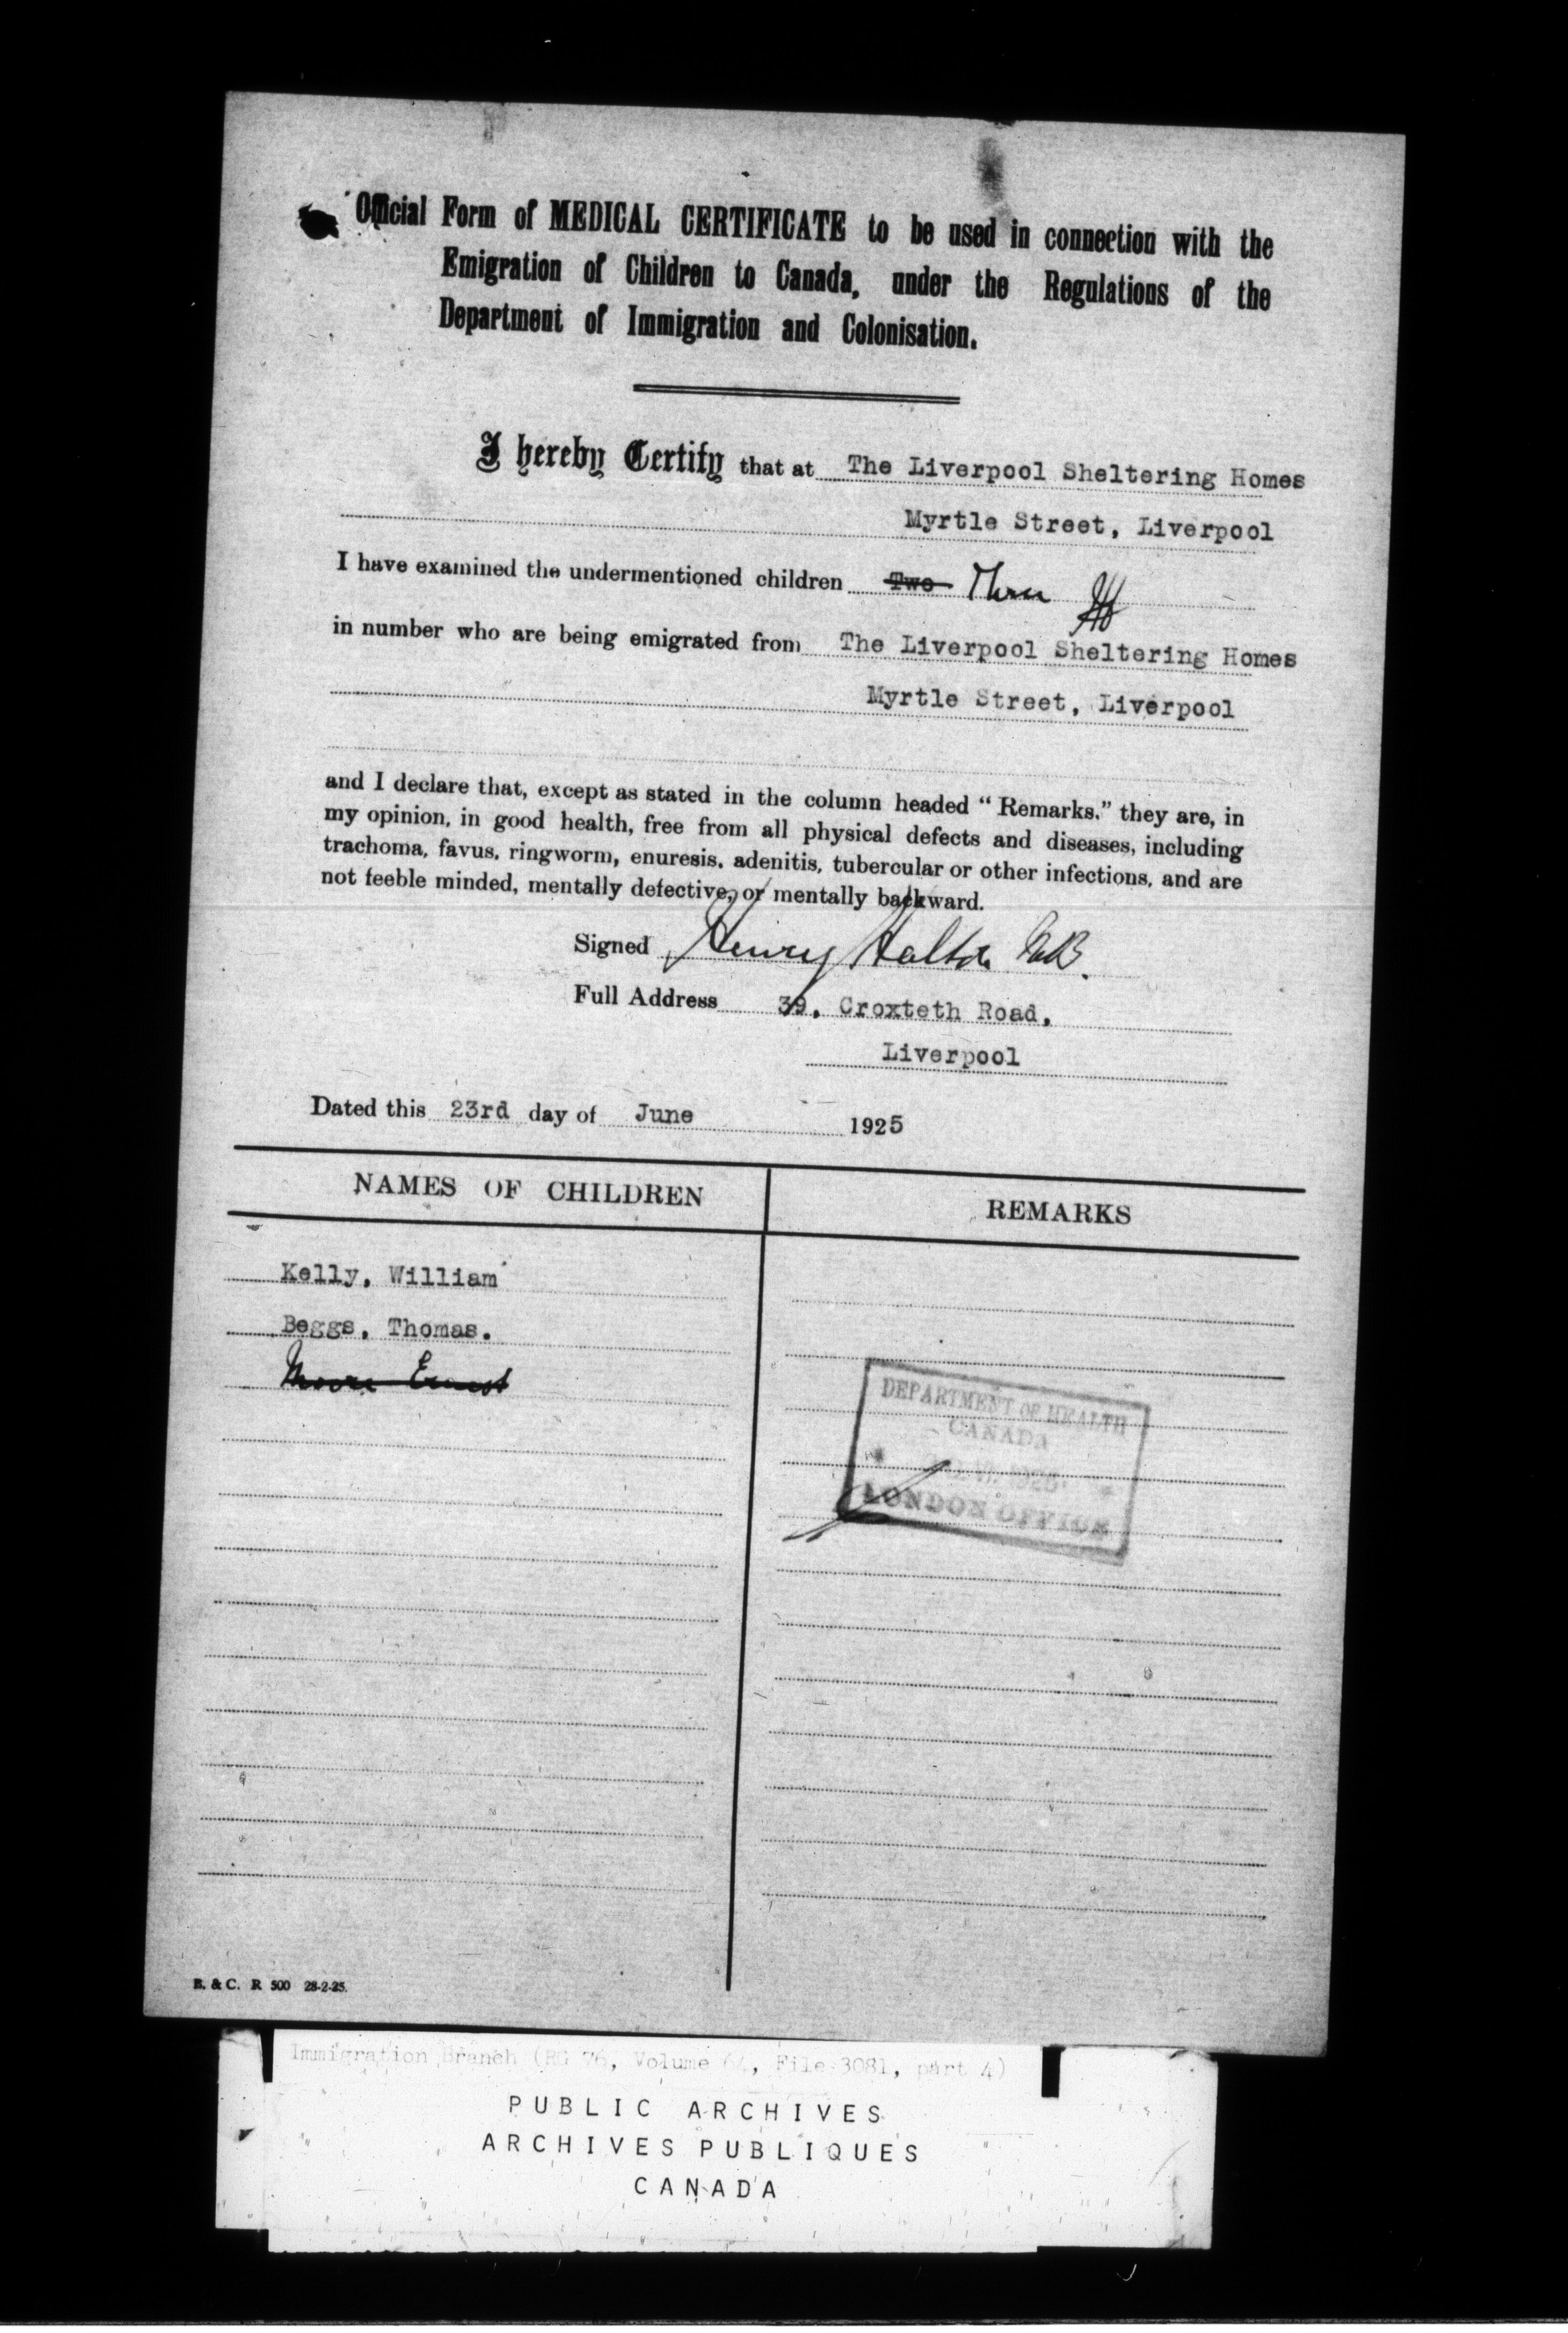 Official Form of MEDICAL CERTIFICATE to be used in connection with the
Emigration of Children to Canada, under the Regulations of the
Department of Immigration and Colonisation.
I hereby Certify that at The Liverpool Sheltering Homes
Myrtle Street, Liverpool
I have examined the undermentioned children Two Three HH
in number who are being emigrated from The Liverpool Sheltering Homes
Myrtle Street, Liverpool
and I declare that, except as stated in the column headed “Remarks.” they are, in
my opinion, in good health, free from all physical defects and diseases, including
trachoma, favus, ringworm, enuresis, adenitis, tubercular or other infections, and are
not feeble minded, mentally defective, or mentally backward.
Signed Henry Halton M.B.
Full Address 39, Croxteth Road,
Liverpool
Dated this 23rd day of June 1925
NAMES OF CHILDREN
REMARKS
Kelly, William
Beggs, Thomas.
Moore Ernest
DEPARTMENT OF HEALTH
CANADA
1925
LONDON OFFICE
B. & C. R 500 28-2-25.
Immigration Branch (RG 76, Volume 64, File 3081, part 4)
PUBLIC ARCHIVES
ARCHIVES PUBLIQUES
CANADA